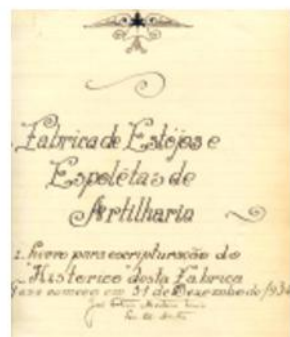 Fabrica de Estójos e
Espolétas de
Artilharia
1. livro para escripturação do
Historico desta Fabrica
que começa em 31 de Dezembro de 1934